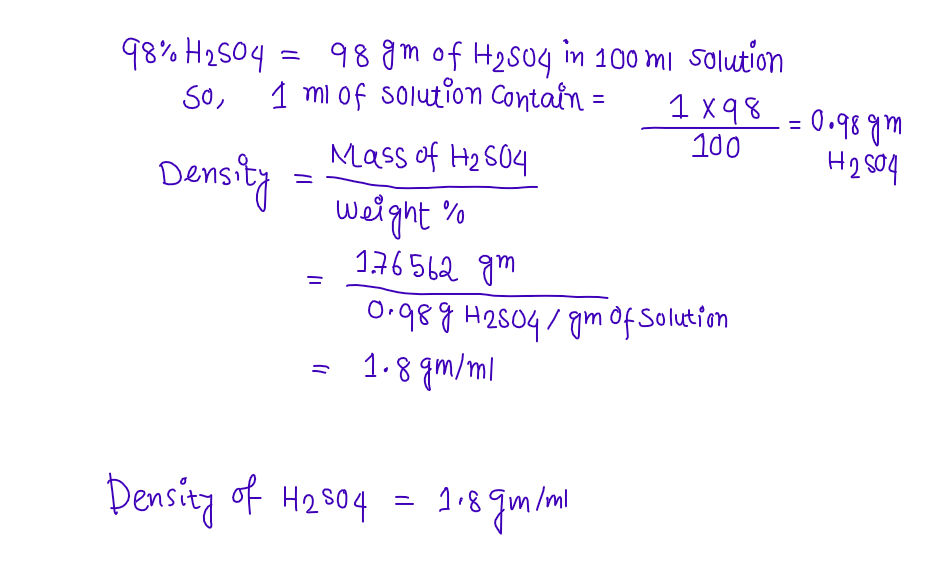 98% H2SO4 = 98 gm of H2SO4 in 100 ml solution
So, 1 ml of solution Contain = 1 X 98 / 100 = 0.98 gm H2SO4
Density = Mass of H2SO4 / Weight %
= 1.76562 gm / 0.98 g H2SO4 / gm of Solution
= 1.8 gm/ml
Density of H2SO4 = 1.8 gm/ml